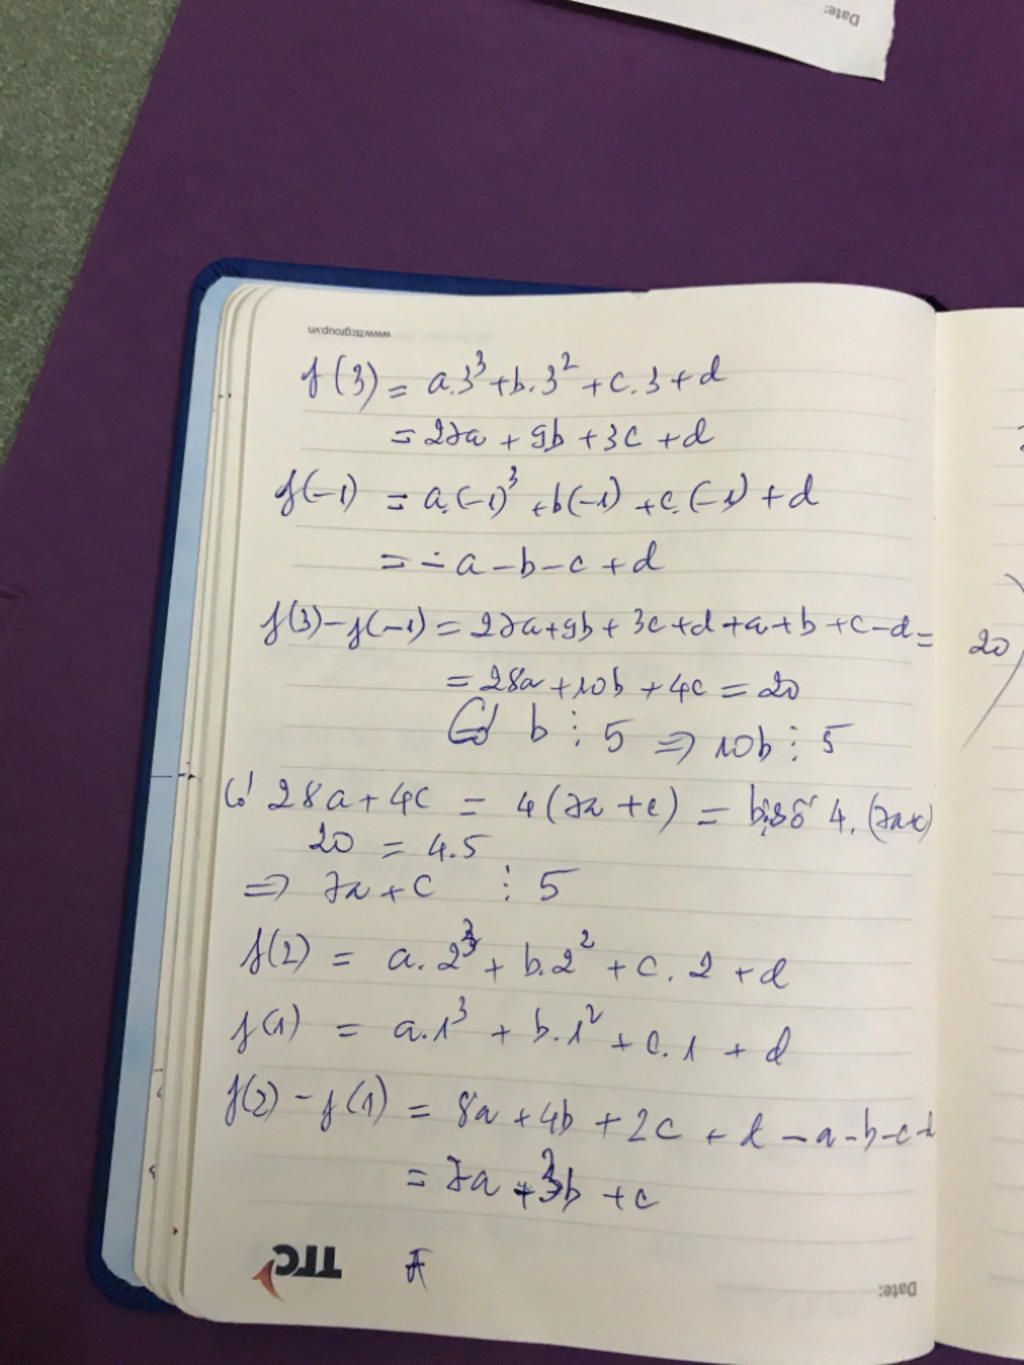 Date:
www.ttcgroup.vn
f(3) = a.3³ + b.3² + c.3 + d
= 27a + 9b + 3c + d
f(-1) = a.(-1)³ + b(-1) + c.(-1) + d
= -a - b - c + d
f(3) - f(-1) = 27a + 9b + 3c + d + a + b + c - d = 20
= 28a + 10b + 4c = 20
Có b ⋮ 5 ⇒ 10b ⋮ 5
Có 28a + 4c = 4(7a + c) = bội số 4.(7a+c)
20 = 4.5
⇒ 7a + c ⋮ 5
f(2) = a.2³ + b.2² + c.2 + d
f(1) = a.1³ + b.1² + c.1 + d
f(2) - f(1) = 8a + 4b + 2c + d - a - b - c - d
= 7a + 3b + c
TTC
Date: